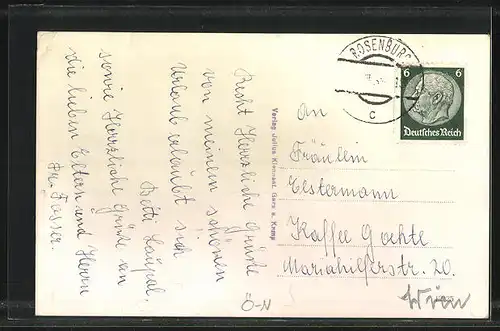 Recht Herzliche Grüße
von meinem schönen
Urlaub erlaubt sich
Betti
sowie Herzliche Grüße an
die lieben Eltern und Herrn
Ö-N
Verlag Julius Kiennast, Gars a. Kamp
ROSENBURG
C
6 6
Deutsches Reich
An
Fräulein
Estermann
Kaffee Goethe
Mariahilferstr. 20.
Wien